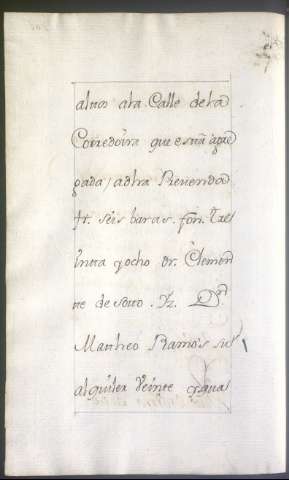 altos ala Calle dela
Corredoira que está agre
gada, adha Prevenda
ft. seis baras. fon. Tre
inta y ocho dr. Clemen
te de soto. Yz. Dn
Mattheo Ramos su
alquiler Veinte y qua